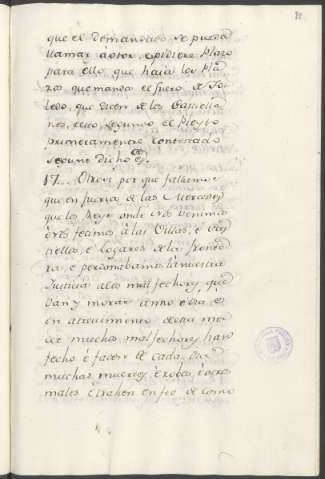 que el demandado se pueda
llamar á otor, e pidiere plazo
para ello, que haia los pla
zos que manda el fuero de To
ledo, que dicen de los Castella
nos, desto segundo el Pleyto
primeramente contestado
segunt dicho es.
17. Otrosi por que fallamos
que en fuerza de las Mercedes
que los Reyes onde nos venimos
e nos fecimos à las Villas, e Cas
tiellos, e Logares de la fronte
ra, e perdonabamos la nuestra
Justicia a los malfechores que
van y morar anno e dia, e
en atrevimiento desta mer
ced muchos malfechores han
fecho è facen de cada dia
muchas muertes, è robos, è otros
males, è trahen en fee de como